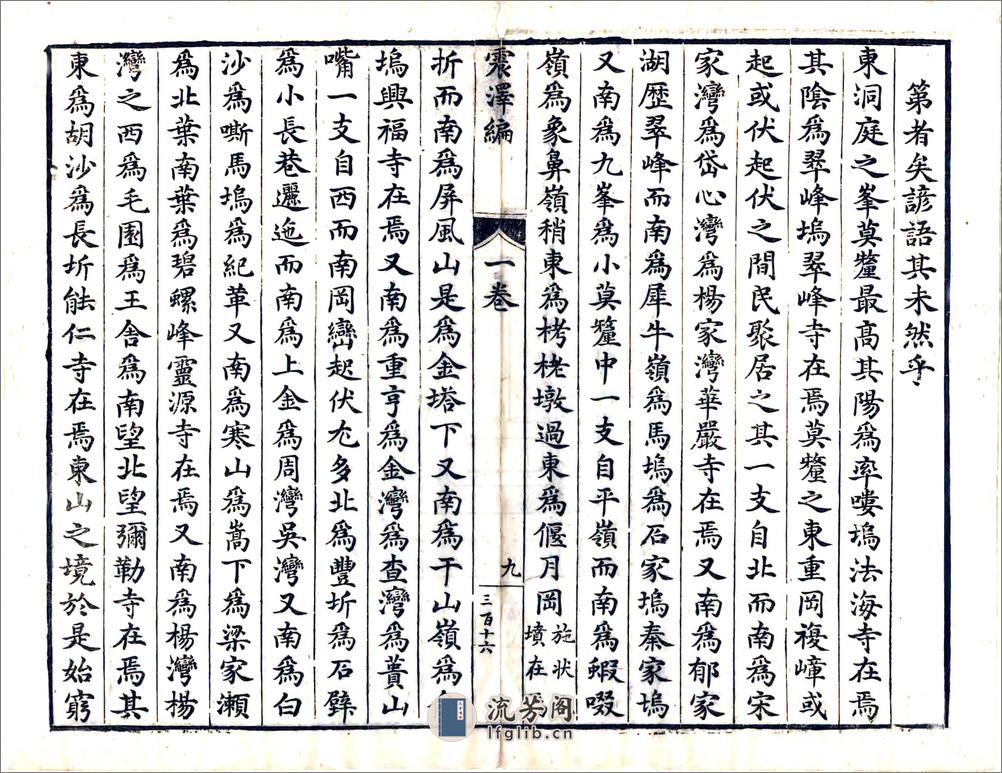 第者矣諺語其未然乎
東洞庭之峯莫釐最高其陽爲率嘍塢法海寺在焉
其陰爲翠峰塢翠峰寺在焉莫釐之東重岡複嶂或
起或伏起伏之間民聚居之其一支自北而南爲宋
家灣爲岱心灣爲楊家灣華嚴寺在焉又南爲郁家
湖歷翠峰而南爲犀牛嶺爲馬塢爲石家塢秦家塢
又南爲九峯爲小莫釐中一支自平嶺而南爲蝦啜
嶺爲象鼻嶺稍東爲栲栳墩過東爲偃月岡
施狀
墳在焉
震澤編
一卷
九
三百十六
折而南爲屏風山是爲金塔下又南爲干山嶺爲
塢興福寺在焉又南爲重亨爲金灣爲查灣爲蕢山
嘴一支自西而南岡巒起伏尤多北爲豐圻爲石壁
爲小長巷邐迤而南爲上金爲周灣吳灣又南爲白
沙爲嘶馬塢爲紀革又南爲寒山爲嵩下爲梁家瀨
爲北葉南葉爲碧螺峰靈源寺在焉又南爲楊灣楊
灣之西爲毛園爲王舍爲南望北望彌勒寺在焉其
東爲胡沙爲長圻能仁寺在焉東山之境於是始窮
流芳阁
lfglib.cn